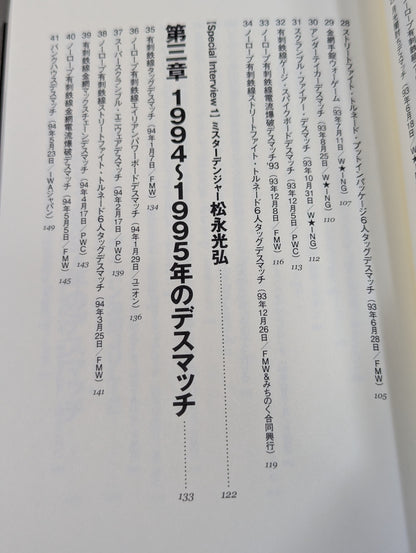 28 ストリートファイト・トルネード・プットインパッケージ6人タッグデスマッチ（93年6月28日／FMW） 105
29 金網手錠ウォーゲーム（93年7月1日／W★ING） 107
30 アンダーテイカーデスマッチ（93年8月25日／W★ING） 110
31 スクランブル・ファイアー・デスマッチ（93年10月31日／W★ING） 112
32 有刺鉄線ケージ・スパイクボードデスマッチ（93年12月5日／PWC） 113
33 ノーロープ有刺鉄線電流爆破デスマッチ'93（93年12月8日／FMW） 116
34 ノーロープ有刺鉄線ストリートファイト・トルネード6人タッグデスマッチ（93年12月26日／FMW&みちのく合同興行） 119
【Special Interview 1】 ミスターデンジャー松永光弘 122
第三章 1994〜1995年のデスマッチ 133
35 有刺鉄線タッグデスマッチ（94年1月7日／FMW） 134
36 ノーロープ有刺鉄線エイリアンパワーボードデスマッチ（94年1月29日／ユニオン） 136
37 スーパースクランブル・エニウェアデスマッチ（94年2月17日／PWC） 139
38 ノーロープ有刺鉄線ストリートファイト・トルネード6人タッグデスマッチ（94年3月25日／FMW） 141
39 有刺鉄線金網マックスチェーンデスマッチ（94年4月17日／PWC） 143
40 ノーロープ有刺鉄線金網電流爆破デスマッチ（94年5月5日／FMW） 145
41 バンクハウスデスマッチ（94年5月23日／IWAジャパン） 149